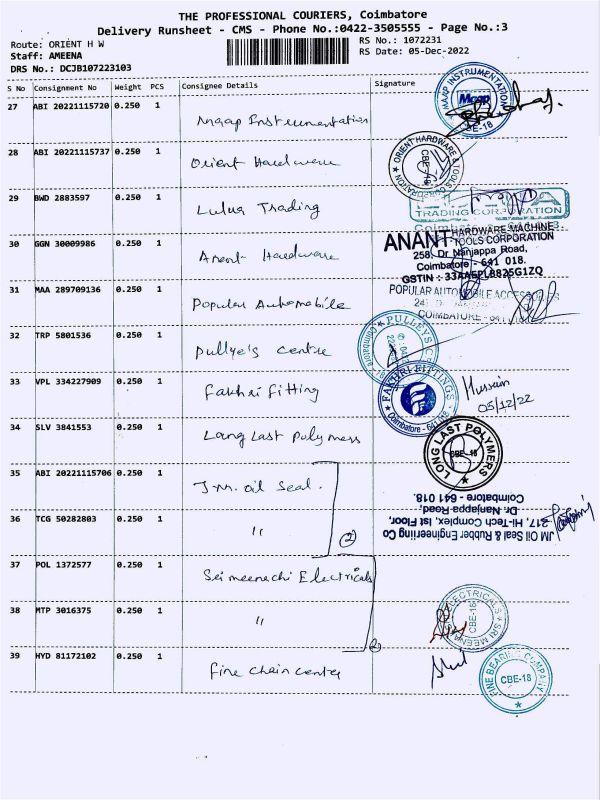 THE PROFESSIONAL COURIERS, Coimbatore
Delivery Runsheet - CMS - Phone No.:0422-3505555 - Page No.:3
Route: ORIENT H W
RS No.: 1072231
Staff: AMEENA
RS Date: 05-Dec-2022
DRS No.: DCJB107223103
S No Consignment No Weight PCS Consignee Details Signature
27 ABI 20221115720 0.250 1 Maap Instrumentation
MAAP INSTRUMENTATION Maap CBE-18
28 ABI 20221115737 0.250 1 Orient Hardware
ORIENT HARDWARE & TOOLS CORPORATION CBE-18
29 BWD 2883597 0.250 1 Lulua Trading
TRADING CORPORATION
30 GGN 30009986 0.250 1 Anant Hardware
ANANT HARDWARE MACHINE
TOOLS CORPORATION
258, Dr Nanjappa Road,
Coimbatore - 641 018.
GSTIN : 33AAEPL8825G1ZQ
31 MAA 289709136 0.250 1 Popular Automobile
POPULAR AUTOMOBILE ACCESSORIES
COIMBATORE - 641
32 TRP 5801536 0.250 1 Pullye's Centre
PULLEYS Coimbatore
33 VPL 334227909 0.250 1 Fakhri Fitting
FAKHRI FITTINGS Coimbatore - 641 018
Hussain
05/12/22
34 SLV 3841553 0.250 1 Long Last Polymess
LONG LAST POLYMERS CBE-18
35 ABI 20221115706 0.250 1 J.M. Oil Seal.
36 TCG 50282803 0.250 1 "
2
JM Oil Seal & Rubber Engineeriing Co
217, Hi-Tech Complex, Ist Floor,
Dr. Nanjappa Road,
Coimbatore - 641 018.
37 POL 1372577 0.250 1 Sri meenachi Electricals
38 MTP 3016375 0.250 1 "
2
ELECTRICALS SRI MEENA CBE-18
39 HYD 81172102 0.250 1 Fine Chain Center
FINE BEARING COMPANY CBE-18